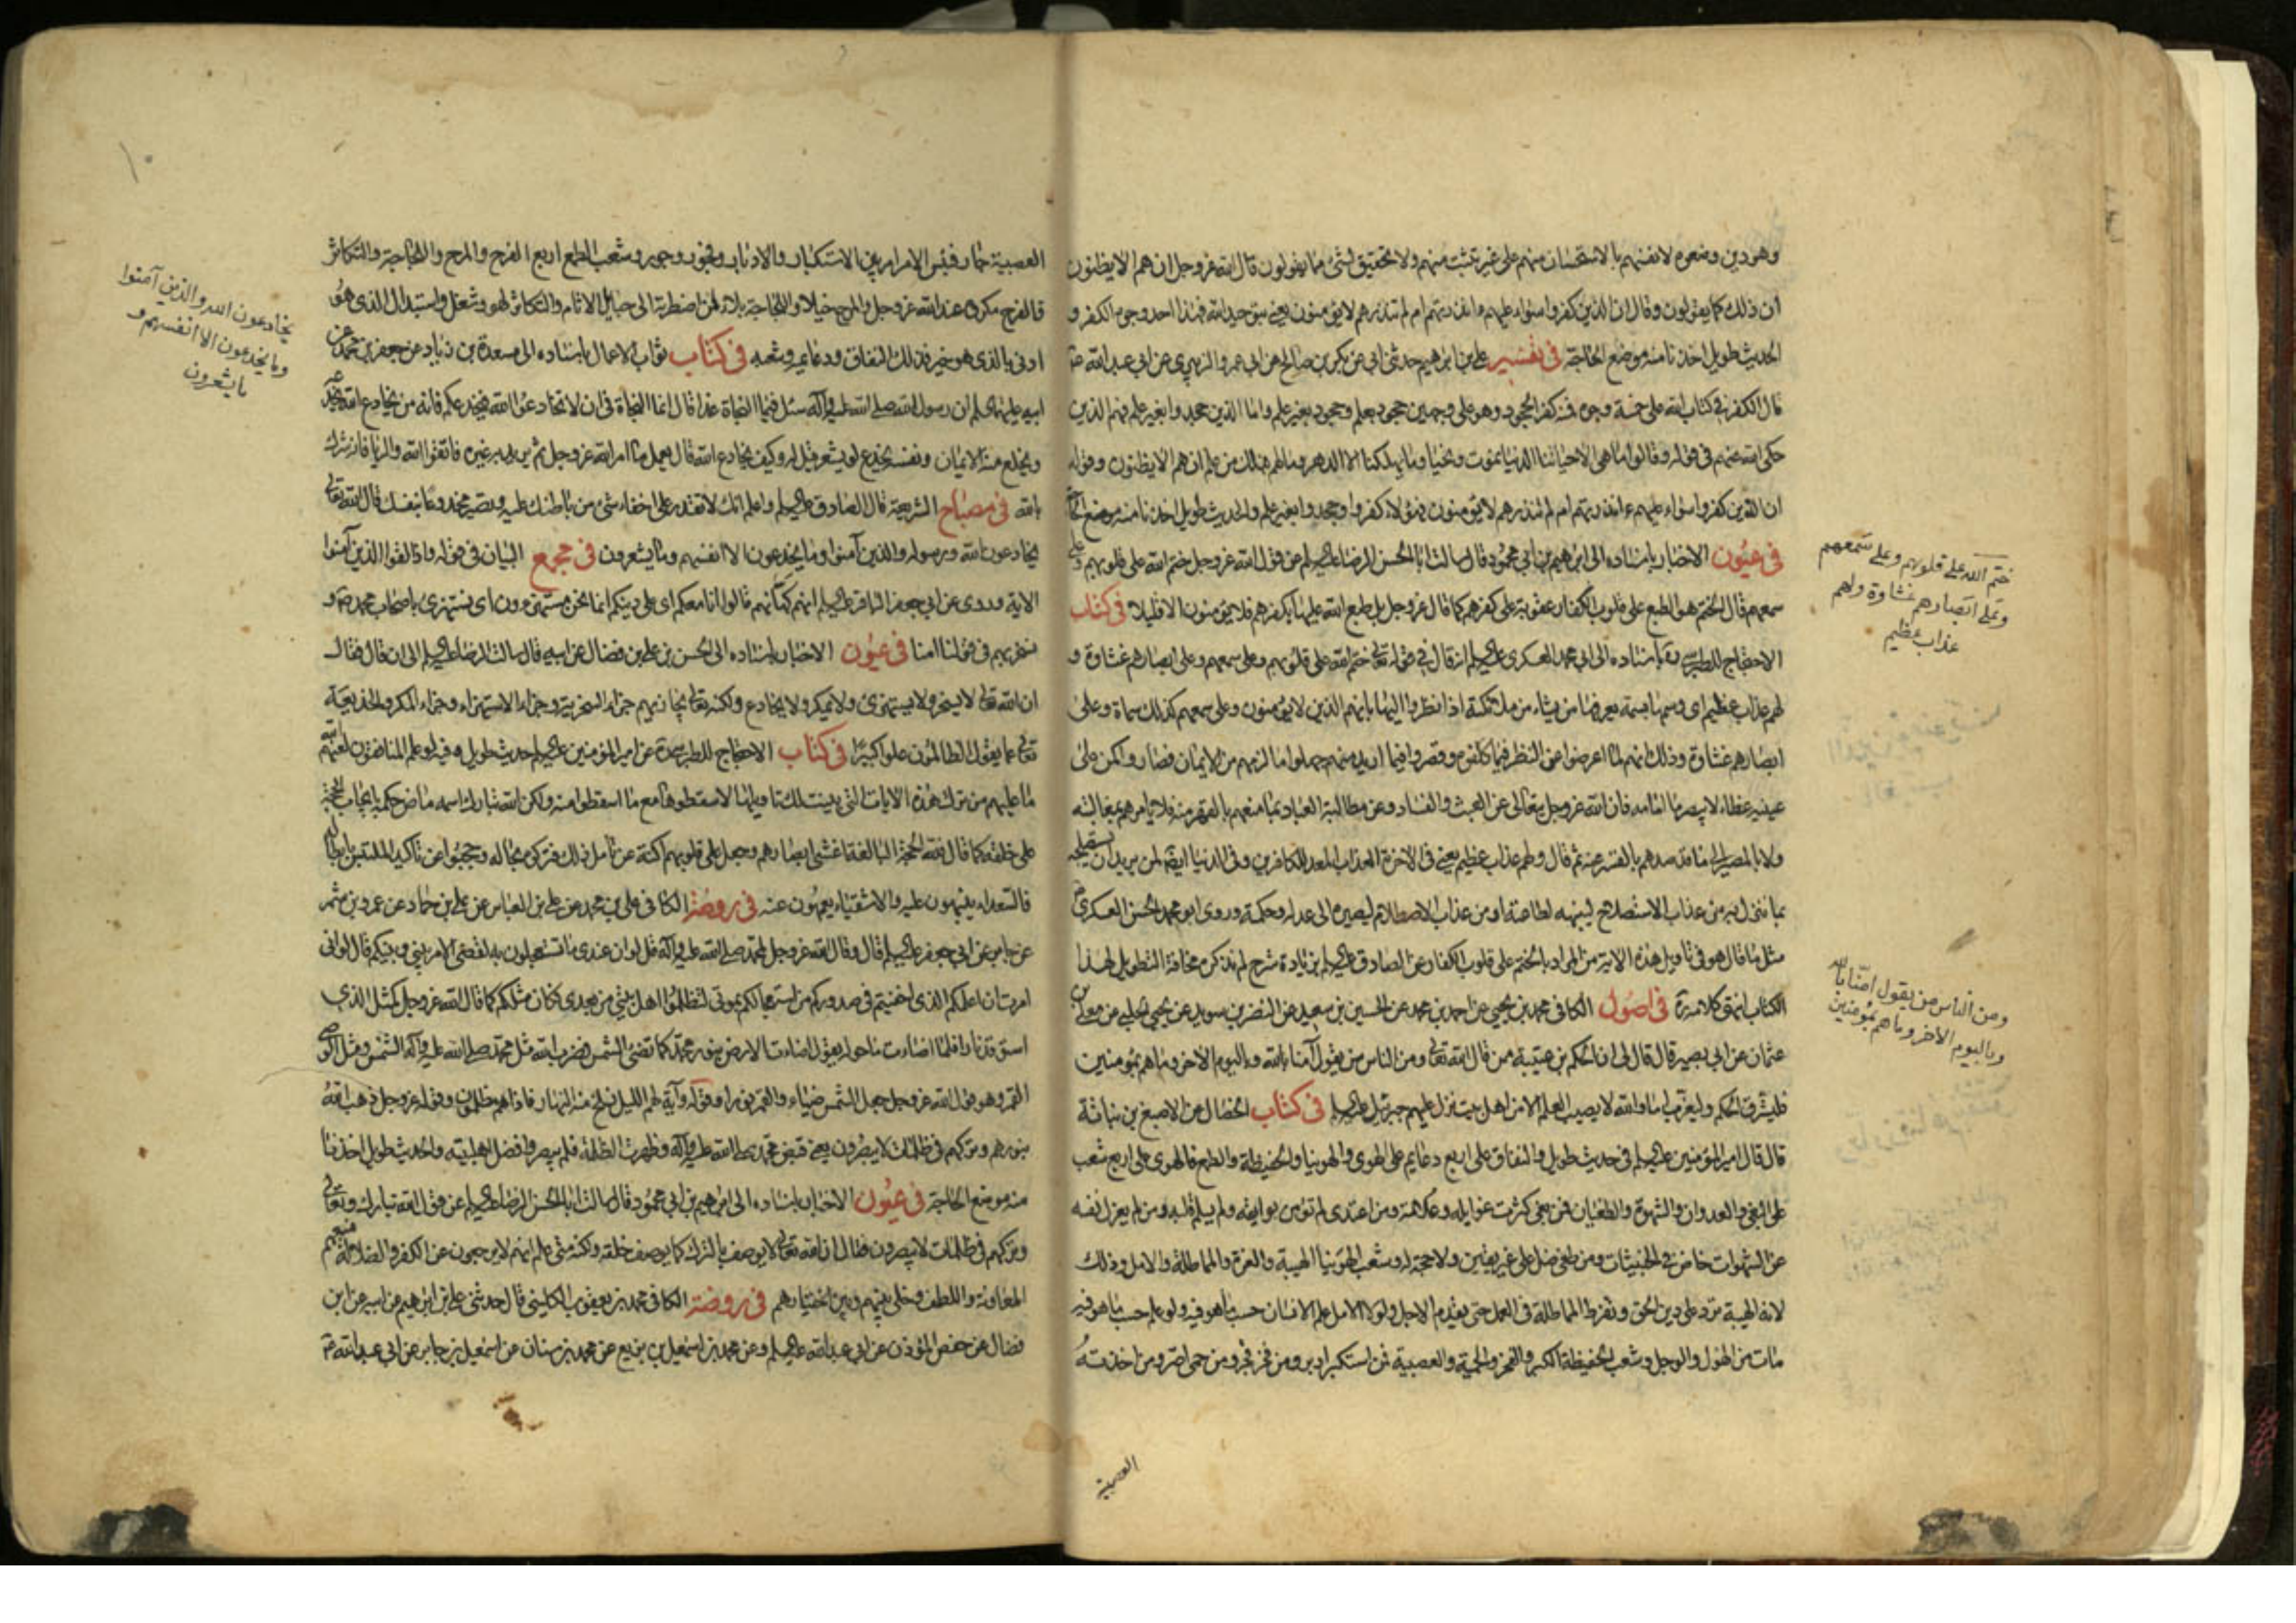 وهو دين وضعوه لانفسهم بالاستحسان منهم على غير تثبت منهم ولا تحقيق لشئ مما يقولون قال الله عز وجل ان هم الا يظنون
ان ذلك كما يقولون وقال ان الذين كفروا سواء عليهم ءانذرتهم ام لم تنذرهم لا يؤمنون يعنى بتوحيد الله فهذا احد وجوه الكفر و
الحديث طويل اخذنا منه موضع الحاجة فى تفسير على بن ابراهيم حدثنى ابى عن بكر بن صالح عن ابى عمر والزبيرى عن ابى عبد الله
قال الكفر فى كتاب الله على خمسة وجوه فمنه كفر الجحود وهو على وجهين جحود بعلم وجحود بغير علم واما الذين جحدوا بغير علم فهم الذين
حكى الله عنهم فى قوله وقالوا ما هى الا حياتنا الدنيا نموت ونحيا وما يهلكنا الا الدهر وما لهم بذلك من علم ان هم الا يظنون وقوله
ان الذين كفروا سواء عليهم ءانذرتهم ام لم تنذرهم لا يؤمنون فهؤلاء كفروا وجحدوا بغير علم والحديث طويل اخذنا منه موضع الحاجة
فى عيون الاخبار باسناده الى ابراهيم بن ابى محمود قال سالت ابا الحسن الرضا عليه السلم عن قول الله عز وجل ختم الله على قلوبهم وعلى
سمعهم قال الختم هو الطبع على قلوب الكفار عقوبة على كفرهم كما قال عز وجل بل طبع الله عليها بكفرهم فلا يؤمنون الا قليلا فى كتاب
الاحتجاج للطبرسى ره باسناده الى ابى محمد العسكرى عليه السلم انه قال فى قوله تعالى ختم الله على قلوبهم وعلى سمعهم وعلى ابصارهم غشاوة و
لهم عذاب عظيم اى وسمها بسمة يعرفها من يشاء من ملائكته اذا نظروا اليها بانهم الذين لا يؤمنون وعلى سمعهم كذلك سماة وعلى
ابصارهم غشاوة وذلك انهم لما اعرضوا عن النظر فيما كلفوه وقصروا فيما اريد منهم جهلوا ما لزمهم من الايمان فصاروا كمن على
عينيه غطاء لا يبصر ما امامه فان الله عز وجل يتعالى عن العبث والفساد وعن مطالبة العباد بما منعهم بالقهر منه فلا يامرهم بمغالبته
ولا بالمصير الى ما قد صدهم بالقسر عنه ثم قال ولهم عذاب عظيم يعنى فى الاخرة العذاب المعد للكافرين وفى الدنيا ايضا لمن يريد ان يستصلحه
بما ينزل به من عذاب الاستصلاح لينبهه لطاعته او من عذاب الاصطلام ليصيره الى عدله وحكمه وروى ابو محمد الحسن العسكرى
مثل ما قال هو فى تاويل هذه الاية من المراد بالختم على قلوب الكفار عن الصادق عليه السلم بزيادة شرح لم نذكره مخافة التطويل لهذا
الكتاب انتهى كلامه ره فى اصول الكافى محمد بن يحيى عن احمد بن محمد عن الحسين بن سعيد عن النضر بن سويد عن يحيى الحلبى عن معلى بن
عثمان عن ابى بصير قال قال لى ان الحكم بن عتيبة ممن قال الله تعالى ومن الناس من يقول آمنا بالله وباليوم الاخر وما هم بمؤمنين
فليشرق الحكم وليغرب اما والله لا يصيب العلم الا من اهل بيت نزل عليهم جبرئيل عليه السلم فى كتاب الخصال عن الاصبغ بن نباتة
قال قال امير المؤمنين عليه السلم فى حديث طويل والنفاق على اربع دعايم على الهوى والهوينا والحفيظة والطمع فالهوى على اربع شعب
على البغى والعدوان والشهوة والطغيان فمن بغى كثرت غوايله وعلاته ومن اعتدى لم تؤمن بوايقه ولم يسلم قلبه ومن لم يعزل نفسه
عن الشهوات خاض فى الخبيثات ومن طغى ضل على غير يقين ولا حجة له وشعب الهوينا الهيبة والغرة والمماطلة والامل وذلك
لانه الهيبة ترد على دين الحق وتفرط المماطلة فى العمل حتى يقدم الاجل ولولا الامل علم الانسان حسب ما هو فيه ولو علم حسب ما هو فيه
مات من الهول والوجل وشعب الحفيظة الكبر والفخر والحمية والعصبية فمن استكبر ادبر ومن فخر فجر ومن حمى اصر ومن اخذته
العصبية
ختم الله على قلوبهم وعلى سمعهم
وعلى ابصارهم غشاوة ولهم
عذاب عظيم
ومن الناس من يقول امنا بالله
وباليوم الاخر وما هم بمؤمنين
العصبية جار فبئس الامر امر بين الاستكبار والادبار وفجور وجور وشعب الطمع اربع الفرح والمرح واللجاجة والتكاثر
فالفرح مكروه عند الله عز وجل والمرح خيلاء واللجاجة بلاء لمن اضطرته الى حبايل الاثام والتكاثر لهو وشغل واستبدال الذى هو
ادنى بالذى هو خير فذلك النفاق ودعايمه وشعبه فى كتاب ثواب الاعمال باسناده الى مسعدة بن زياد عن جعفر بن محمد عن
ابيه عليهما السلم ان رسول الله صلى الله عليه وآله سئل فيما النجاة غدا قال انما النجاة فى ان لا تخادعوا الله فيخدعكم فانه من يخادع الله يخدعه
ويخلع منه الايمان ونفسه يخدع لو يشعر قيل له وكيف يخادع الله قال يعمل ما امر الله عز وجل ثم يريد به غيره فاتقوا الله والريا فانه شرك
بالله فى مصباح الشريعة قال الصادق عليه السلم واعلم انك لا تقدر على اخفاء شئ من باطنك عليه وتصير مخدوعا بنفسك قال الله تعالى
يخادعون الله ورسوله والذين آمنوا وما يخدعون الا انفسهم وما يشعرون فى مجمع البيان فى قوله واذا لقوا الذين آمنوا
الاية وروى عن ابى جعفر الباقر عليه السلم انهم كهانهم قالوا انا معكم اى على دينكم انما نحن مستهزؤن اى نستهزئ باصحاب محمد و
نسخر بهم فى قولنا امنا فى عيون الاخبار باسناده الى الحسن بن على بن فضال عن ابيه قال سالت الرضا عليه السلم الى ان قال فقال
ان الله تعالى لا يسخر ولا يستهزئ ولا يمكر ولا يخادع ولكنه تعالى يجازيهم جزاء السخرية وجزاء الاستهزاء وجزاء المكر والخديعة
تعالى عما يقول الظالمون علوا كبيرا فى كتاب الاحتجاج للطبرسى ره عن امير المؤمنين عليه السلم حديث طويل وفيه لو علم المنافقون لعنهم الله
ما عليهم من ترك هذه الايات التى بينت لك تاويلها لاسقطوها مع ما اسقطوا منه ولكن الله تبارك اسمه ماض حكمه بايجاب الحجة
على خلقه كما قال فلله الحجة البالغة اغشى ابصارهم وجعل على قلوبهم اكنة عن تامل ذلك فتركوه بحاله وحجبوا عن تاكيد الملتبس بابطاله
فالسعداء ينتبهون عليه والاشقياء يعمهون عنه فى روضة الكافى على بن محمد عن على بن العباس عن على بن حماد عن عمرو بن شمر
عن جابر عن ابى جعفر عليه السلم قال وقال الله عز وجل لمحمد صلى الله عليه وآله قل لو ان عندى ما تستعجلون به لقضى الامر بينى وبينكم قال لو انى
امرت ان اعلمكم الذى اخفيتم فى صدوركم من استعجالكم بموتى لتظلموا اهل بيتى من بعدى فكان مثلكم كما قال الله عز وجل كمثل الذى
استوقد نارا فلما اضاءت ما حوله يقول اضاءت الارض بنور محمد كما تضئ الشمس فضرب الله مثل محمد صلى الله عليه وآله الشمس ومثل الوصى
القمر وهو قول الله عز وجل جعل الشمس ضياء والقمر نورا وقوله وآية لهم الليل نسلخ منه النهار فاذا هم مظلمون وقوله عز وجل ذهب الله
بنورهم وتركهم فى ظلمات لا يبصرون يعنى قبض محمد صلى الله عليه وآله وظهرت الظلمة فلم يبصروا فضل اهل بيته والحديث طويل اخذنا
منه موضع الحاجة فى عيون الاخبار باسناده الى ابراهيم بن ابى محمود قال سالت ابا الحسن الرضا عليه السلم عن قول الله تبارك وتعالى
وتركهم فى ظلمات لا يبصرون فقال ان الله تعالى لا يوصف بالترك كما يوصف خلقه ولكنه متى علم انهم لا يرجعون عن الكفر والضلال منعهم
المعاونة واللطف وخلى بينهم وبين اختيارهم فى روضة الكافى محمد بن يعقوب الكلينى قال حدثنى على بن ابراهيم عن ابيه عن ابن
فضال عن حفص المؤذن عن ابى عبد الله عليه السلم وعن محمد بن اسمعيل بن بزيع عن محمد بن سنان عن اسمعيل بن جابر عن ابى عبد الله
يخادعون الله والذين آمنوا
وما يخدعون الا انفسهم و
ما يشعرون
١٠